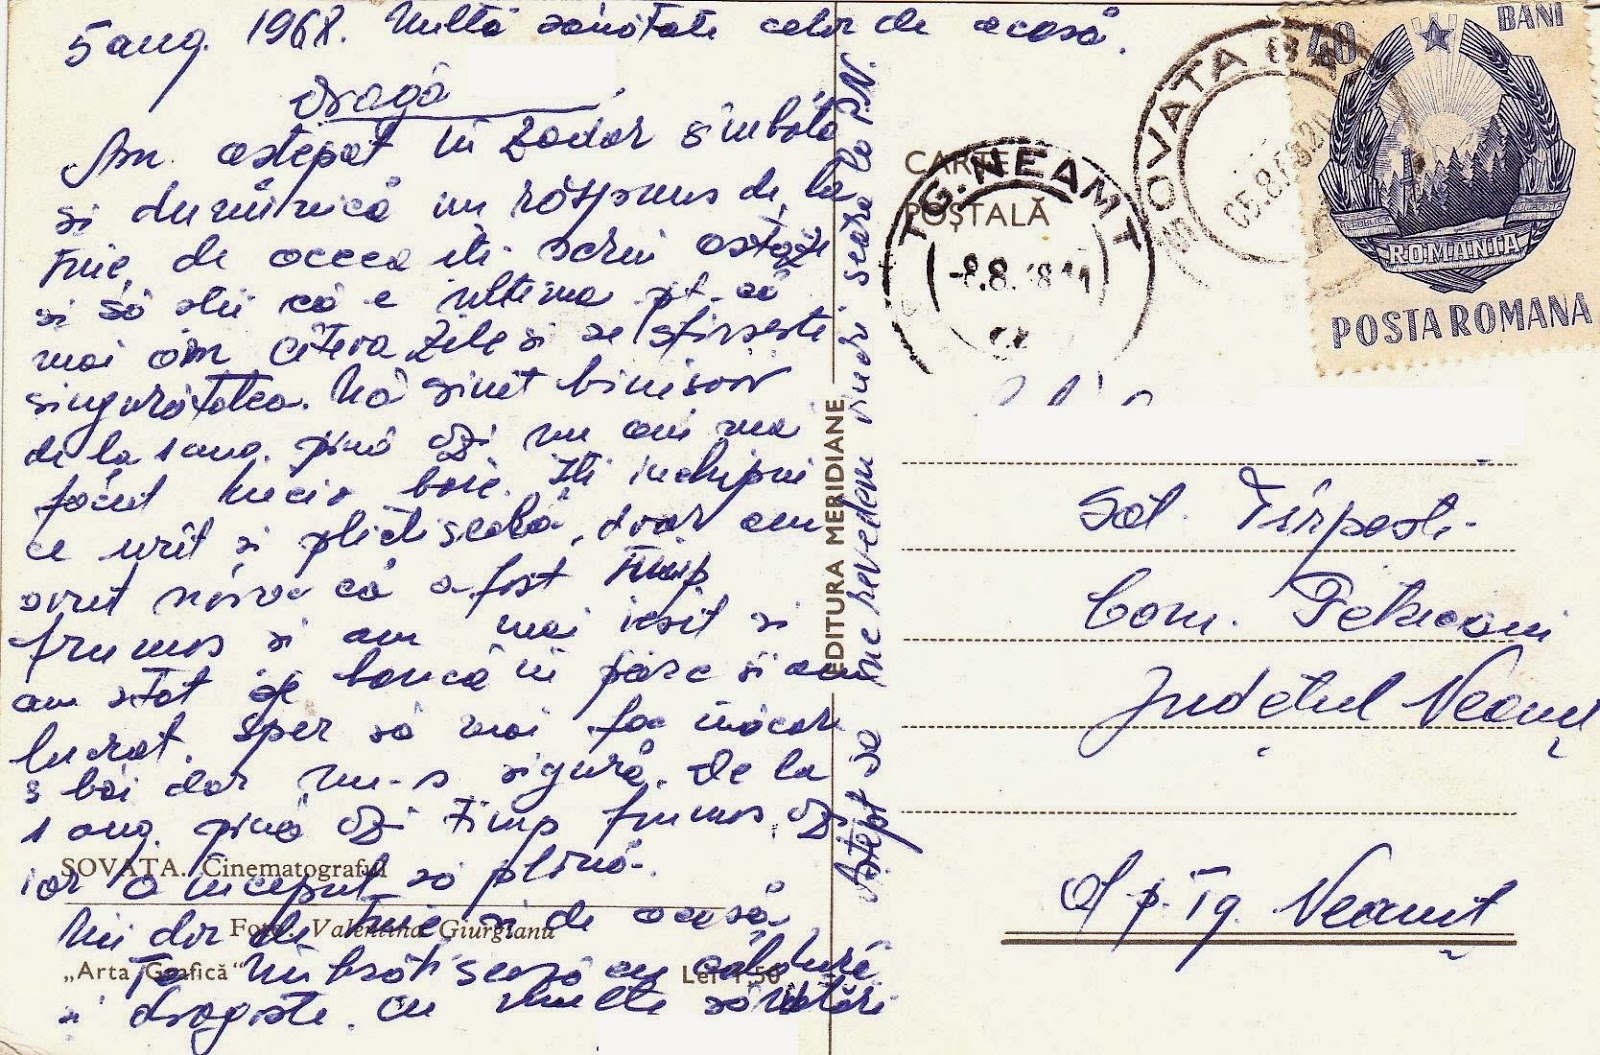 5 aug. 1968. Multă sănătate celor de acasă.
Dragă
Am aștepat în zadar sîmbăta
și duminică un răspuns de la
tine, de aceea îți scriu astăzi
și să știi că e ultima pt. că
mai am cîteva zile și se sfîrșește
singurătatea. Nă sînt binișor
de la 1 aug. pînă azi nu am mai
făcut nicio baie. Îți închipui
ce urît și plictiseală, doar am
avut noroc că a fost timp
frumos și am mai ieșit și
am stat pe bancă în parc și am
lucrat. Sper să mai fac măcar
3 băi dar nu-s sigură. De la
1 aug. pînă azi timp frumos, azi
iar a început să plouă.
Mi dor de tine și de acasă
Te îmbrățișează cu căldură
și dragoste. cu multe sărutări
Aștept să ne revedem vineri seara la P.N.
SOVATA. Cinematograful
Foto: Valentina Giurgianu
„Arta Grafică“
Lei 1,50
EDITURA MERIDIANE
CARTE
POȘTALĂ
TG. NEAMT
-8.8.68.11
SOVATA
05.8.68.20
40 BANI
ROMANIA
POSTA ROMANA
Sat. Tîrpești
Com. Petricani
Județul Neamț
Of. p. Tg. Neamț